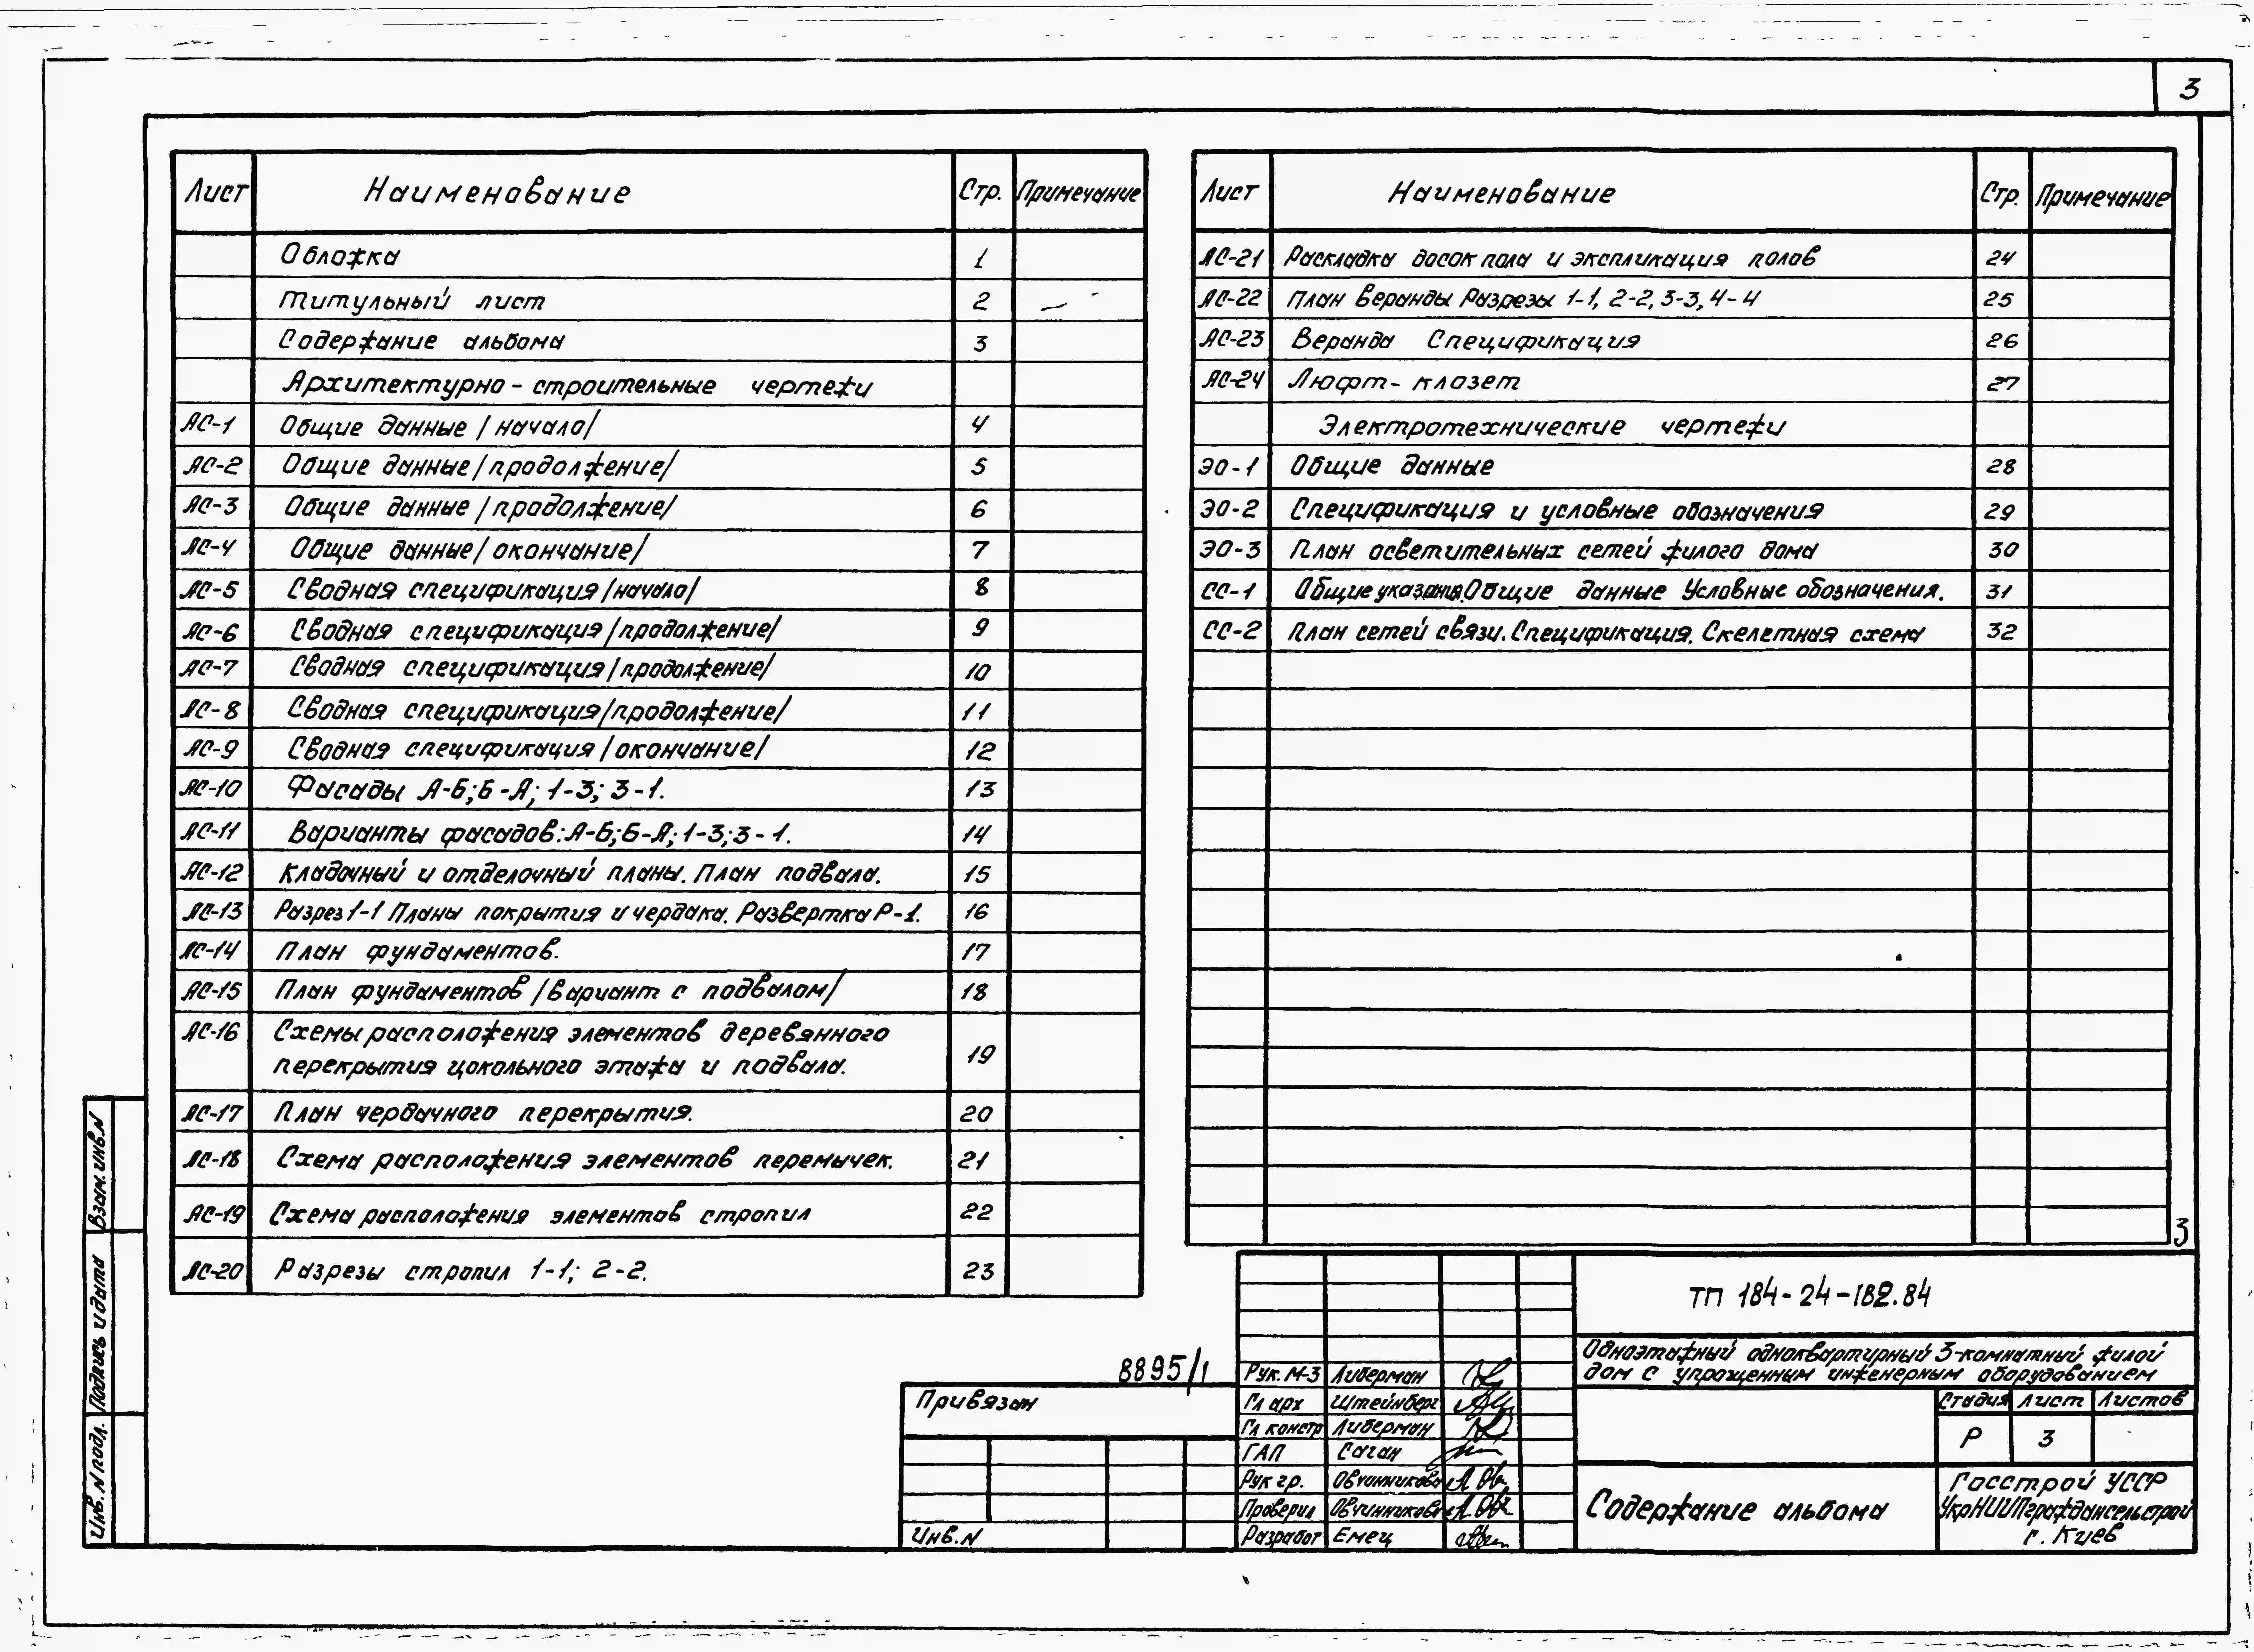 3
Лист Наименование Стр. Примечание
Обложка 1
Титульный лист 2
Содержание альбома 3
Архитектурно-строительные чертежи
АС-1 Общие данные /начало/ 4
АС-2 Общие данные /продолжение/ 5
АС-3 Общие данные /продолжение/ 6
АС-4 Общие данные /окончание/ 7
АС-5 Сводная спецификация /начало/ 8
АС-6 Сводная спецификация /продолжение/ 9
АС-7 Сводная спецификация /продолжение/ 10
АС-8 Сводная спецификация /продолжение/ 11
АС-9 Сводная спецификация /окончание/ 12
АС-10 Фасады А-Б; Б-А; 1-3; 3-1. 13
АС-11 Варианты фасадов: А-Б; Б-А; 1-3; 3-1. 14
АС-12 Кладочный и отделочный планы. План подвала. 15
АС-13 Разрез 1-1 Планы покрытия и чердака. Развертка Р-1. 16
АС-14 План фундаментов. 17
АС-15 План фундаментов /вариант с подвалом/ 18
АС-16 Схемы расположения элементов деревянного
перекрытия цокольного этажа и подвала. 19
АС-17 План чердачного перекрытия. 20
АС-18 Схема расположения элементов перемычек. 21
АС-19 Схема расположения элементов стропил 22
АС-20 Разрезы стропил 1-1; 2-2. 23
Лист Наименование Стр. Примечание
АС-21 Раскладка досок пола и экспликация полов 24
АС-22 План веранды Разрезы 1-1, 2-2, 3-3, 4-4 25
АС-23 Веранда Спецификация 26
АС-24 Люфт-клозет 27
Электротехнические чертежи
ЭО-1 Общие данные 28
ЭО-2 Спецификация и условные обозначения 29
ЭО-3 План осветительных сетей жилого дома 30
СС-1 Общие указания. Общие данные Условные обозначения. 31
СС-2 План сетей связи. Спецификация. Скелетная схема 32
3
Взам. инв.N
Подпись и дата
Инв. N подл.
8895/1
Привязан
Инв.N
Рук. М-3 Либерман
Гл арх Штейнберг
Гл констр Либерман
ГАП Саган
Рук гр. Овчинникова
Проверил Овчинникова
Разработ Емец
ТП 184-24-182.84
Одноэтажный одноквартирный 3-комнатный жилой
дом с упрощенным инженерным оборудованием
Стадия Лист Листов
Р 3
Содержание альбома
Госстрой УССР
УкрНИИПграждансельстрой
г. Киев